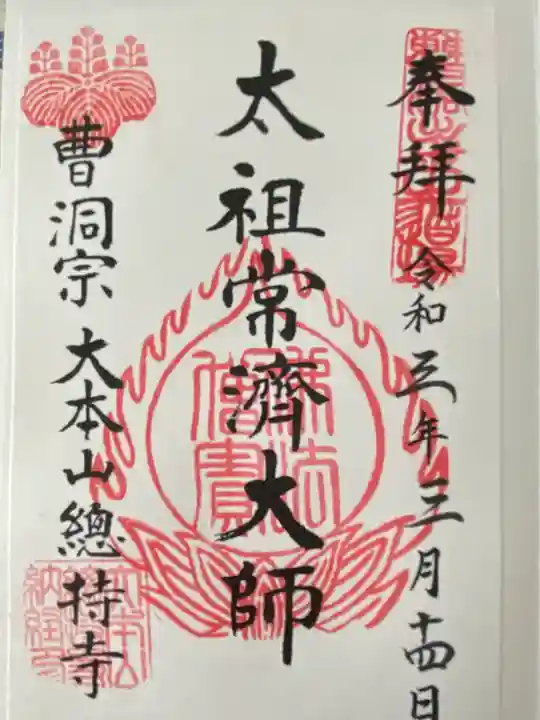 奉拝 令和三年三月十四日
太祖常濟大師
曹洞宗 大本山總持寺
佛法僧寳